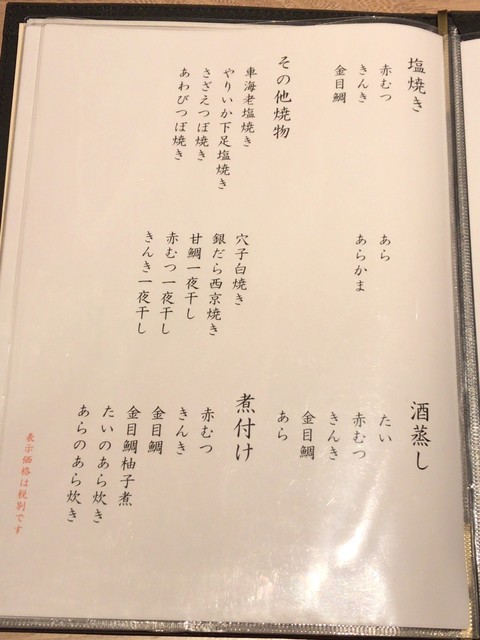 塩焼き
赤むつ
きんき
金目鯛
あら
あらかま
その他焼物
車海老塩焼き
やりいか下足塩焼き
さざえつぼ焼き
あわびつぼ焼き
穴子白焼き
銀だら西京焼き
甘鯛一夜干し
赤むつ一夜干し
きんき一夜干し
酒蒸し
たい
赤むつ
きんき
金目鯛
あら
煮付け
赤むつ
きんき
金目鯛
金目鯛柚子煮
たいのあら炊き
あらのあら炊き
表示価格は税別です